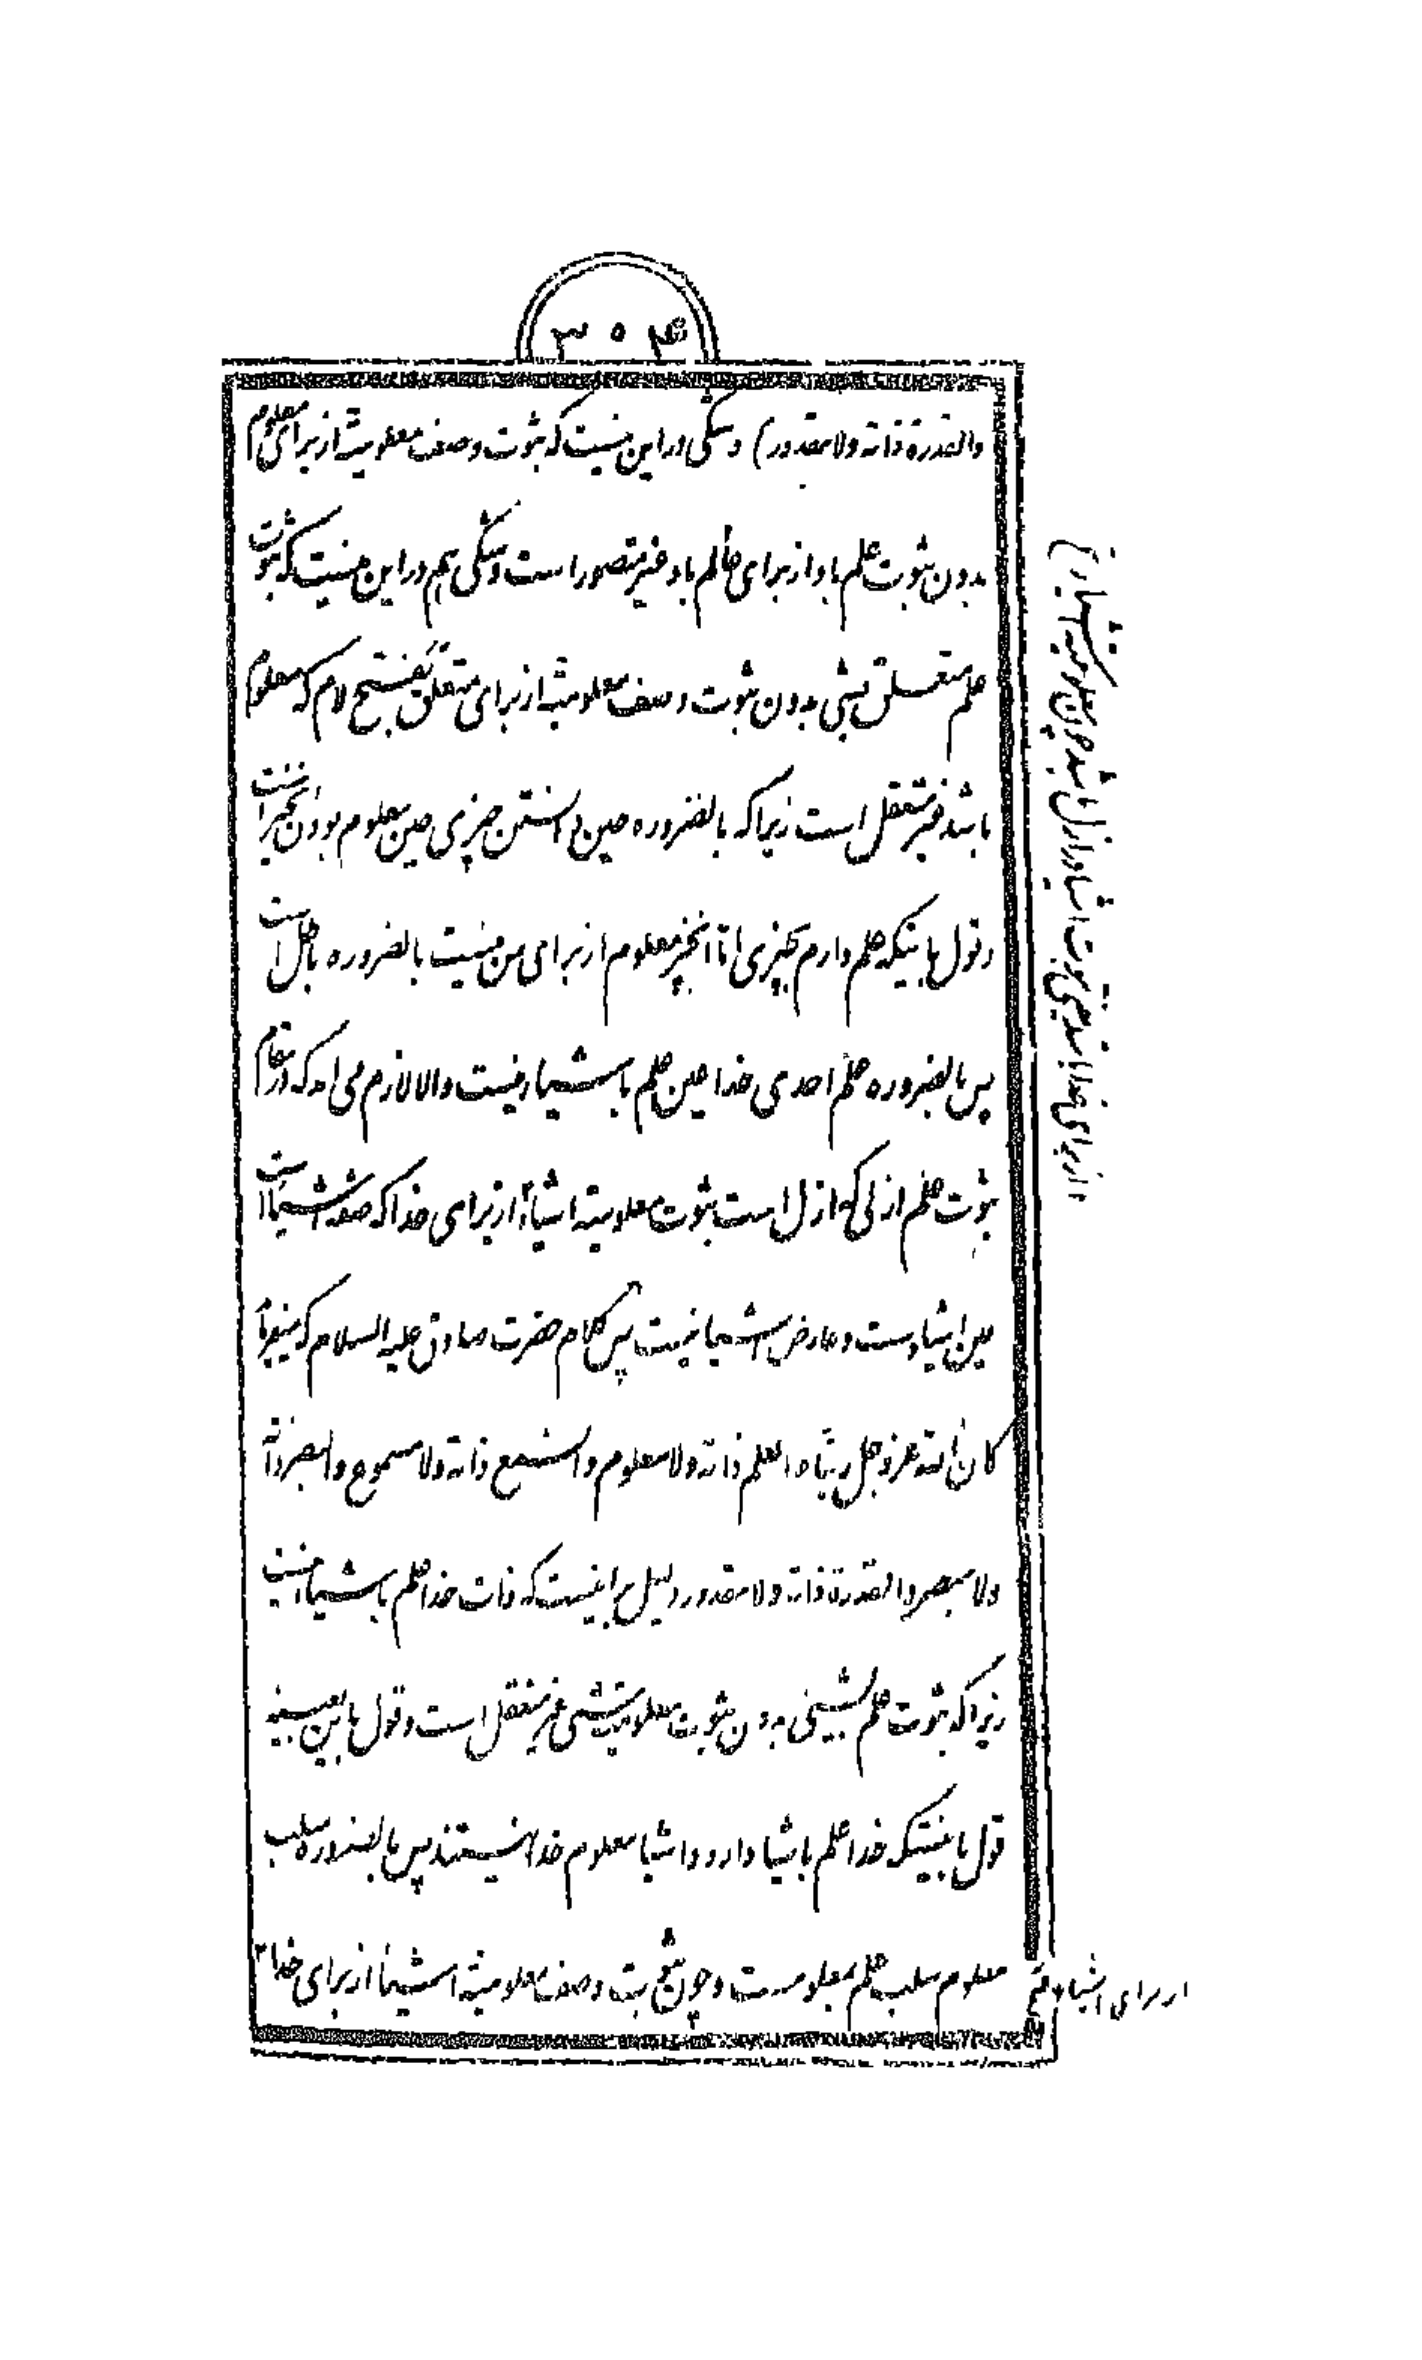 ۳۰۴
والقدرة ذاته ولا مقدور) و شکی در این نیست که ثبوت وصف معلومیت از برای معلوم
بدون ثبوت علم باو از برای عالم باو غیر متصور است و شکی هم در این نیست که ثبوت
علم متعلق بشی بدون ثبوت وصف معلومیت از برای متعلق بفتح لام که معلوم
باشد غیر متعقل است زیرا که بالضروره عین دانستن چیزی عین معلوم بودن آنچیز است
و قول باینکه علم دارم بچیزی اما آنچیز معلوم از برای من نیست بالضروره باطل است
پس بالضروره علم احدی خدا عین علم باشیاء نیست والا لازم می اید که در مقام
ثبوت علم ازلی که ازل است ثبوت معلومیة اشیاء از برای خدا که صفة اشیا است
عین اشیاء است و عارض اشیا نیست پس کلام حضرت صادق علیه السلام که میفرماید
کان الله عز و جل ربنا والعلم ذاته ولا معلوم والسمع ذاته ولا مسموع والبصر ذاته
ولا مبصر والقدرة ذاته ولا مقدور دلیل بر اینست که ذات خدا علم باشیا نیست
زیرا که ثبوت علم بشیئی بدون ثبوت معلومیت شئی غیر متعقل است و قول باین بعینه
قول باینستکه خدا علم باشیا دارد و اشیا معلوم خدا نیستند پس بالضروره سلب
معلوم سلب علم بمعلومست و چون وصف معلومیة اشیا از برای خدا ۲
از برای خدا باشد یعنی ثبوت اشیا در ازل باشد چون معلومیة اشیاء
از برای اشیاء